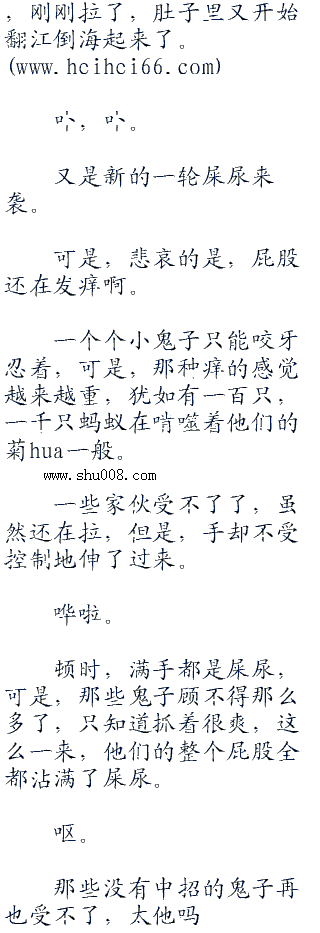 ，刚刚拉了，肚子里又开始
翻江倒海起来了。
(www.hcihci66.com)
卟，卟。
又是新的一轮屎尿来
袭。
可是，悲哀的是，屁股
还在发痒啊。
一个个小鬼子只能咬牙
忍着，可是，那种痒的感觉
越来越重，犹如有一百只，
一千只蚂蚁在啃噬着他们的
菊hua一般。
www.shu008.com
一些家伙受不了了，虽
然还在拉，但是，手却不受
控制地伸了过来。
哗啦。
顿时，满手都是屎尿，
可是，那些鬼子顾不得那么
多了，只知道抓着很爽，这
么一来，他们的整个屁股全
都沾满了屎尿。
呕。
那些没有中招的鬼子再
也受不了，太他吗